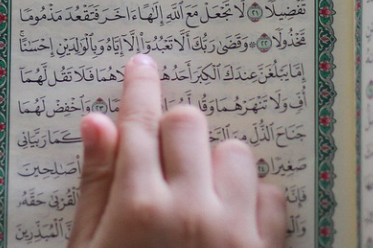 تَفْضِيلًا ٢١ لَّا تَجْعَلْ مَعَ ٱللَّهِ إِلَٰهًا ءَاخَرَ فَتَقْعُدَ مَذْمُومًا
مَّخْذُولًا ٢٢ وَقَضَىٰ رَبُّكَ أَلَّا تَعْبُدُوٓا۟ إِلَّآ إِيَّاهُ وَبِٱلْوَٰلِدَيْنِ إِحْسَٰنًا
إِمَّا يَبْلُغَنَّ عِندَكَ ٱلْكِبَرَ فَلَا تَقُل لَّهُمَآ
أُفٍّ وَلَا تَنْهَرْهُمَا وَقُل ٢٣ وَٱخْفِضْ لَهُمَا
جَنَاحَ ٱلذُّلِّ مِنَ كَمَا رَبَّيَانِى
صَغِيرًا ٢٤
صَٰلِحِينَ
ٱلْقُرْبَىٰ حَقَّهُۥ
ٱلْمُبَذِّرِينَ